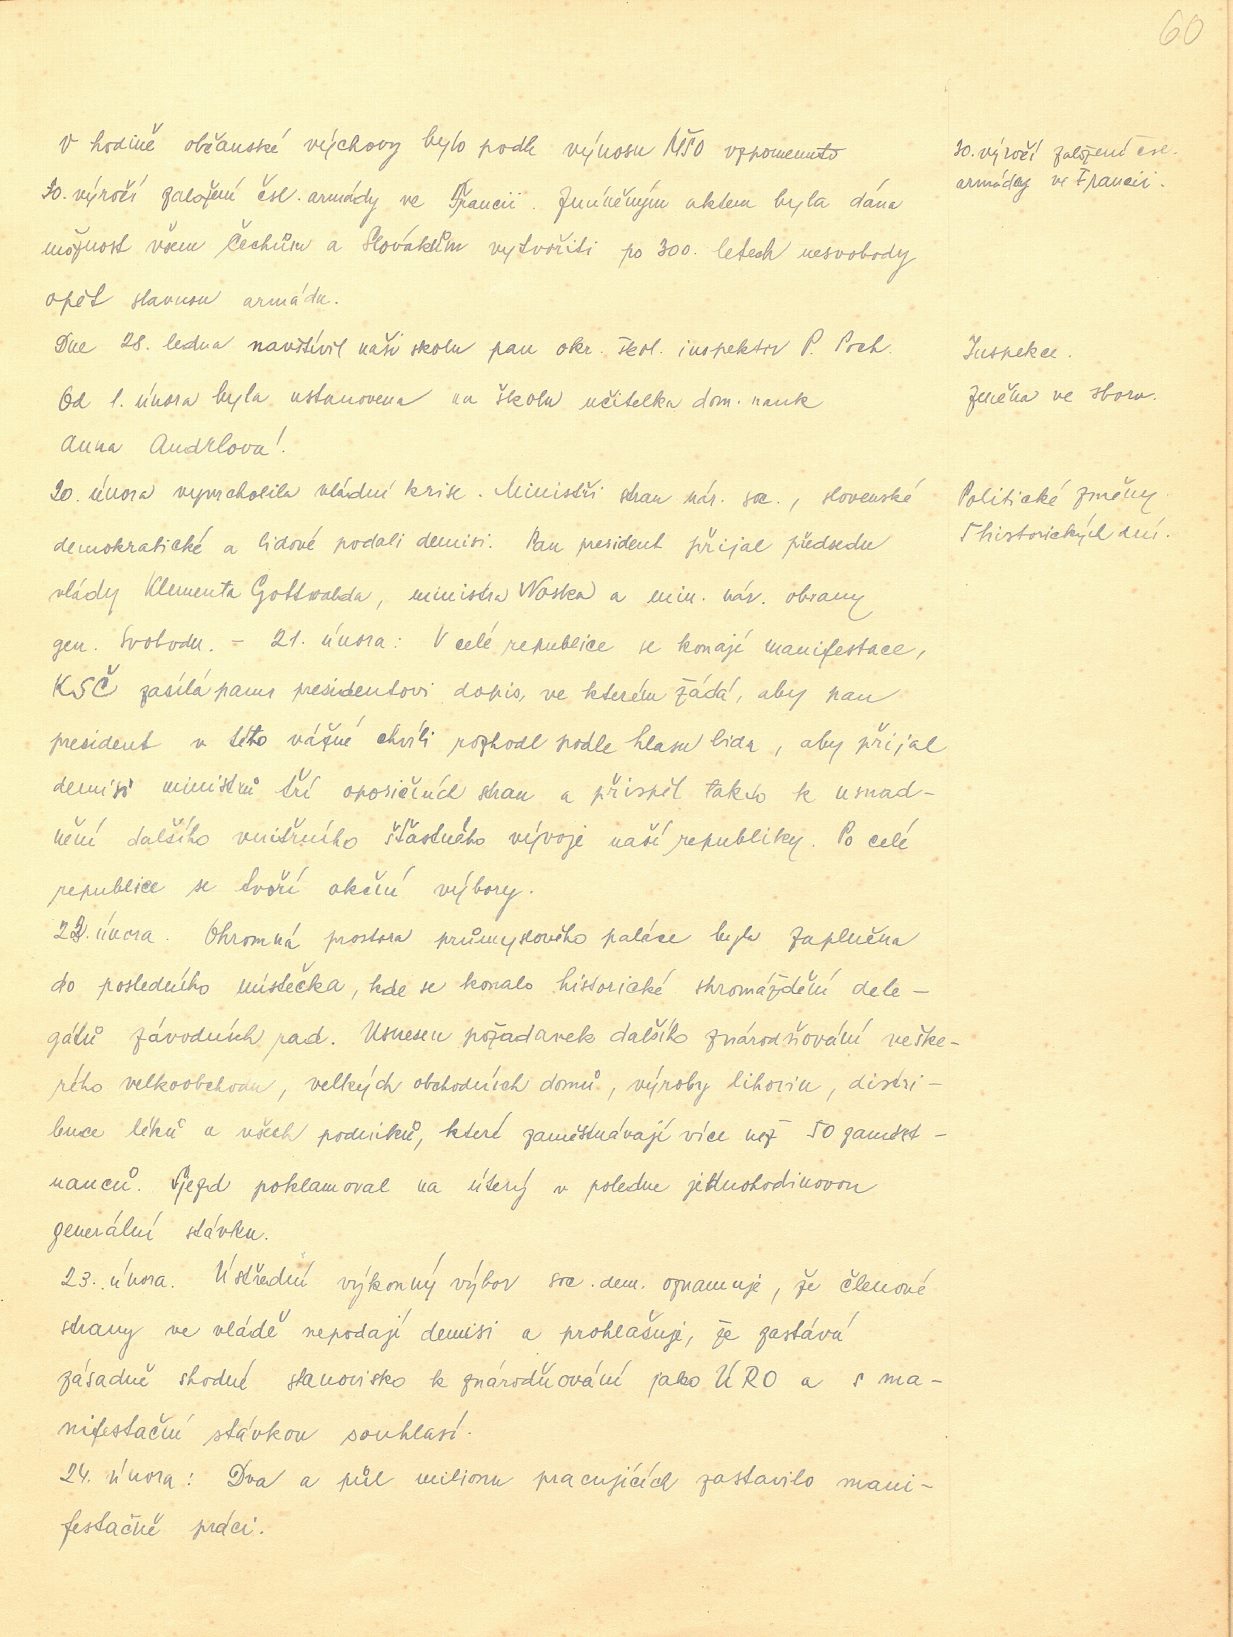 60
V hodině občanské výchovy bylo podle výnosu MŠO vzpomenuto
30. výročí založení čsl. armády ve Francii. Zmíněným aktem byla dána
možnost všem Čechům a Slovákům vytvořiti po 300. letech nesvobody
opět slavnou armádu.
Dne 28. ledna navštívil naši školu pan okr. škol. inspektor P. Poch.
Od 1. února byla ustanovena na školu učitelka dom. nauk
Anna Andrlová.
20. února vyvrcholila vládní krise. Ministři stran nár. soc., slovenské
demokratické a lidové podali demisi. Pan president přijal předsedu
vlády Klementa Gottwalda, ministra Noska a min. nár. obrany
gen. Svobodu. – 21. února: V celé republice se konají manifestace,
KSČ zasílá panu presidentovi dopis, ve kterém žádá, aby pan
president v této vážné chvíli rozhodl podle hlasu lidu, aby přijal
demisi ministrů tří oposičních stran a přispěl takto k usnad-
nění dalšího vnitřního šťastného vývoje naší republiky. Po celé
republice se tvoří akční výbory.
22. února. Ohromná prostora průmyslového paláce byla zaplněna
do posledního místečka, kde se konalo historické shromáždění dele-
gátů závodních rad. Usnesen požadavek dalšího znárodňování veške-
rého velkoobchodu, velkých obchodních domů, výroby lihovin, distri-
buce léků a všech podniků, které zaměstnávají více než 50 zaměst-
nanců. Sjezd poklamoval na úterý v poledne jednohodinovou
generální stávku.
23. února. Ústřední výkonný výbor soc. dem. oznamuje, že členové
strany ve vládě nepodají demisi a prohlašuje, že zastává
zásadně shodné stanovisko k znárodňování jako ÚRO a s ma-
nifestační stávkou souhlasí.
24. února: Dva a půl milionu pracujících zastavilo mani-
festačně práci.
30. výročí založení čsl.
armády ve Francii.
Inspekce.
Změna ve sboru.
Politické změny.
5 historických dní.